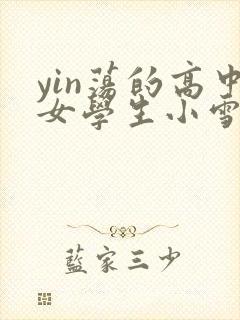 yin蕩的高中
女學生小雪
藍家三少